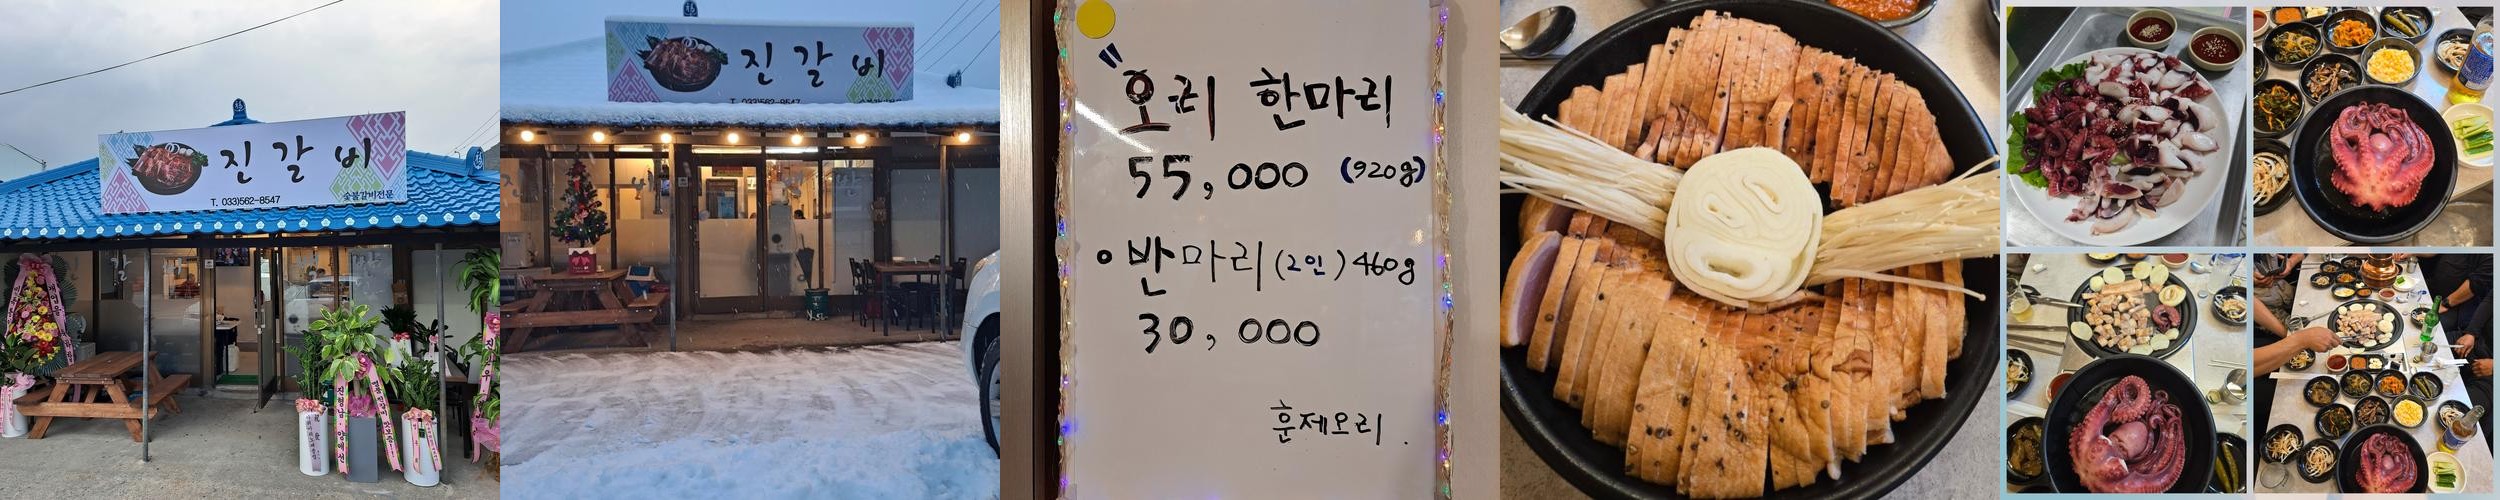 진갈비
T. 033)562-8547
숯불갈비전문
진갈비
T. 033)562-8547
"오리 한마리
55,000 (920g)
• 반마리 (2인) 460g
30,000
훈제오리.